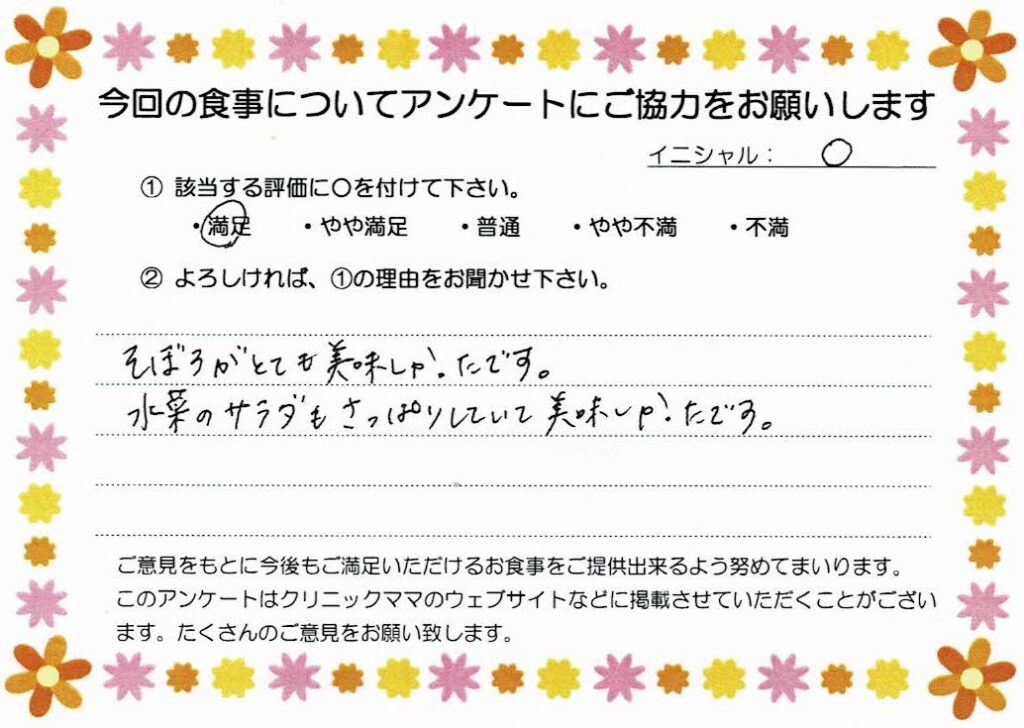 今回の食事についてアンケートにご協力をお願いします
イニシャル： O
① 該当する評価に〇を付けて下さい。
・満足 ・やや満足 ・普通 ・やや不満 ・不満
② よろしければ、①の理由をお聞かせ下さい。
そぼろがとても美味しかったです。
水菜のサラダもさっぱりしていて美味しかったです。
ご意見をもとに今後もご満足いただけるお食事をご提供出来るよう努めてまいります。
このアンケートはクリニックママのウェブサイトなどに掲載させていただくことがござい
ます。たくさんのご意見をお願い致します。